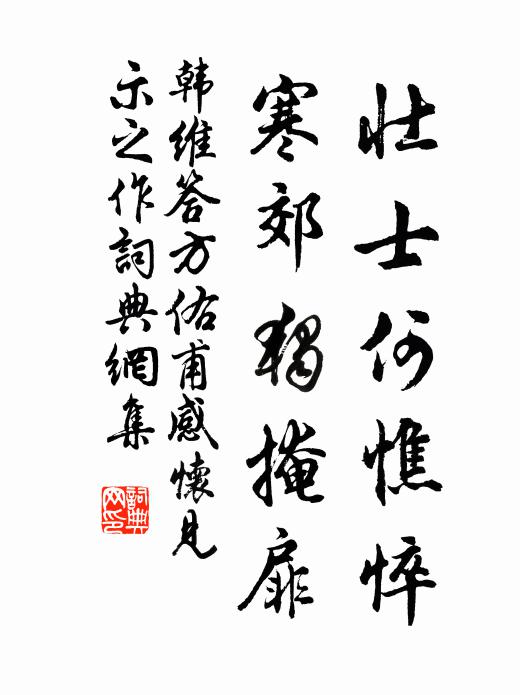 壮士何憔悴
寒郊獨掩扉
韩維答方佑甫感懷見
示之作詞典網集
詞典
网印